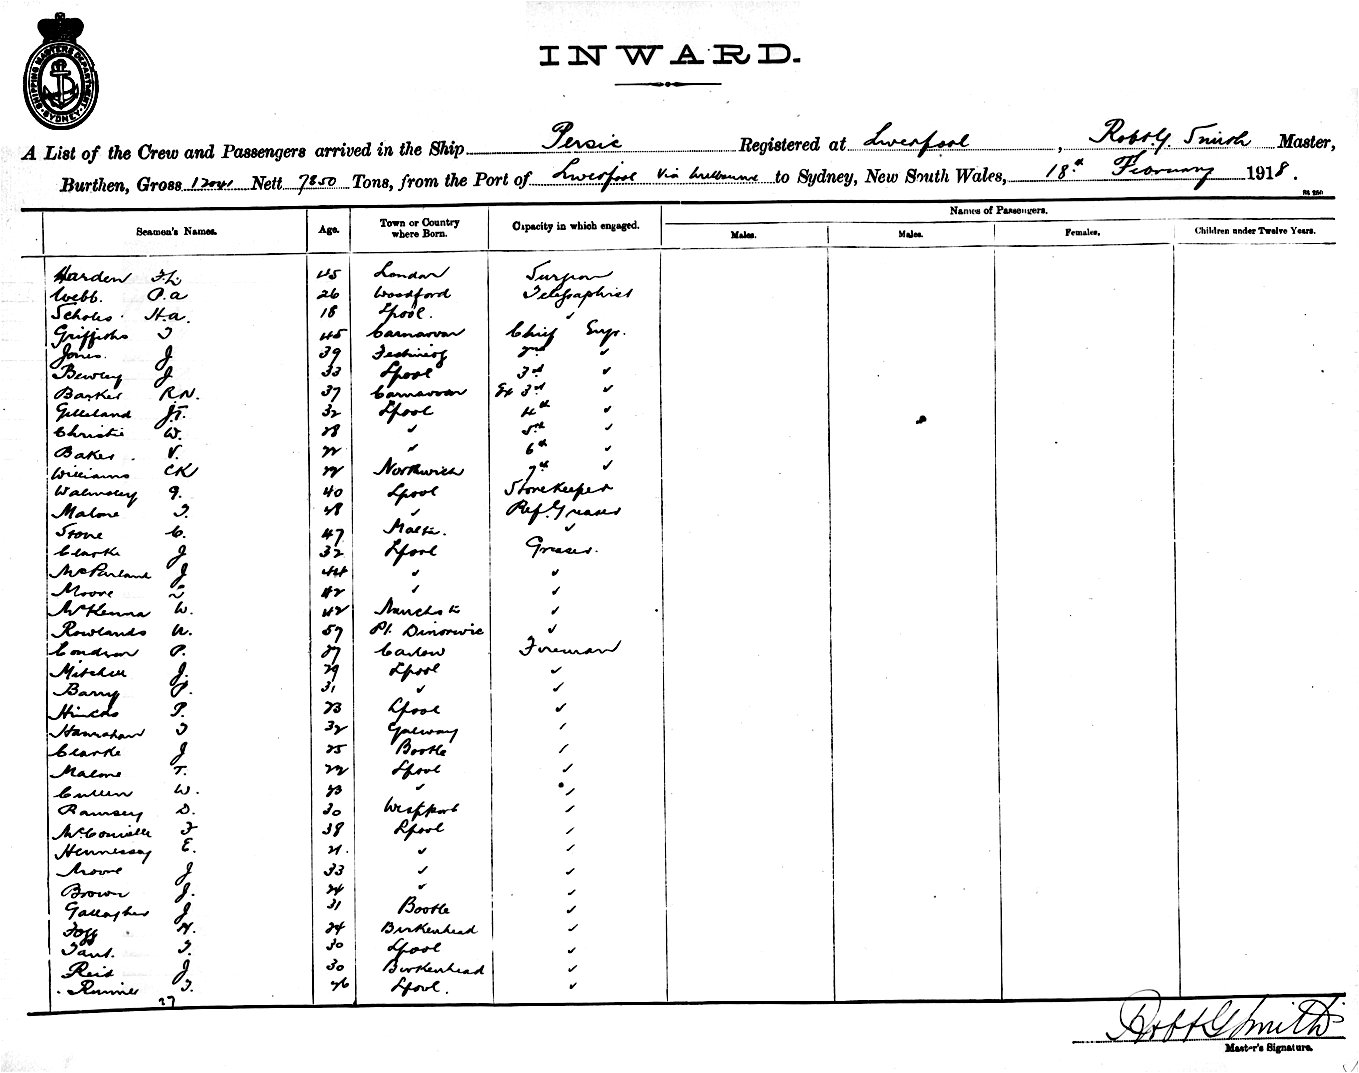 SHIPPING MASTERS DEPARTMENT. SYDNEY.
INWARD.
A List of the Crew and Passengers arrived in the Ship Persic Registered at Liverpool, Robt. G. Smith Master,
Burthen, Gross 12041 Nett 7850 Tons, from the Port of Liverpool via Melbourne to Sydney, New South Wales, 18th February 1918.
Names of Passengers.
Seamen's Names. Age. Town or Country where Born. Capacity in which engaged. Males. Males. Females. Children under Twelve Years.
Harden 45 London Surgeon
Webb. P.A 26 Woodford Telegraphist
Scholes H.A. 18 Lpool. ✓
Griffiths 45 Carnarvon Chief Engr.
Jones J 39 Festiniog 2nd ✓
Bewley J 33 Lpool 3rd ✓
Barker R.N. 37 Carnarvon Ex 3rd ✓
Gilleland J.T. 32 Lpool 4th ✓
Christie W. 28 ✓ 5th ✓
Baker V. 22 ✓ 6th ✓
Williams CK 22 Northwich 7th ✓
Walmsley 40 Lpool Storekeeper
Malone 48 ✓ Ref. Greaser
Stone C. 47 Malta. ✓
Clarke J 32 Lpool Greaser.
McParland J 44 ✓ ✓
Moore 42 ✓ ✓
McKenna W. 42 ✓
Rowlands 57 Pt. Dinorwic ✓
Condron P. 27 Carlow Fireman
Mitchell J. 29 Lpool ✓
Barry P. 31 ✓ ✓
Hincks P. 23 Lpool ✓
Hanrahan 32 Galway ✓
Clarke J 25 Bootle ✓
Malone T. 22 Lpool ✓
Cullen W. 23 ✓ ✓
Ramsey D. 30 Westport ✓
McConville 38 Lpool ✓
Hennessey E. 21. ✓ ✓
Moore J 33 ✓ ✓
Brown J. 24 ✓ ✓
Gallagher J 31 Bootle ✓
Fogg 24 Birkenhead ✓
30 Lpool ✓
Reid J 30 Birkenhead ✓
Rimmer 26 Lpool. ✓
27
Robt G Smith
Master's Signature.